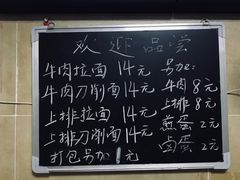 欢迎品尝
牛肉拉面 14元
牛肉刀削面 14元
上排拉面 14元
上排刀削面 14元
打包另加 1元
另加:
牛肉 8元
上排 8元
煎蛋 2元
卤蛋 2元